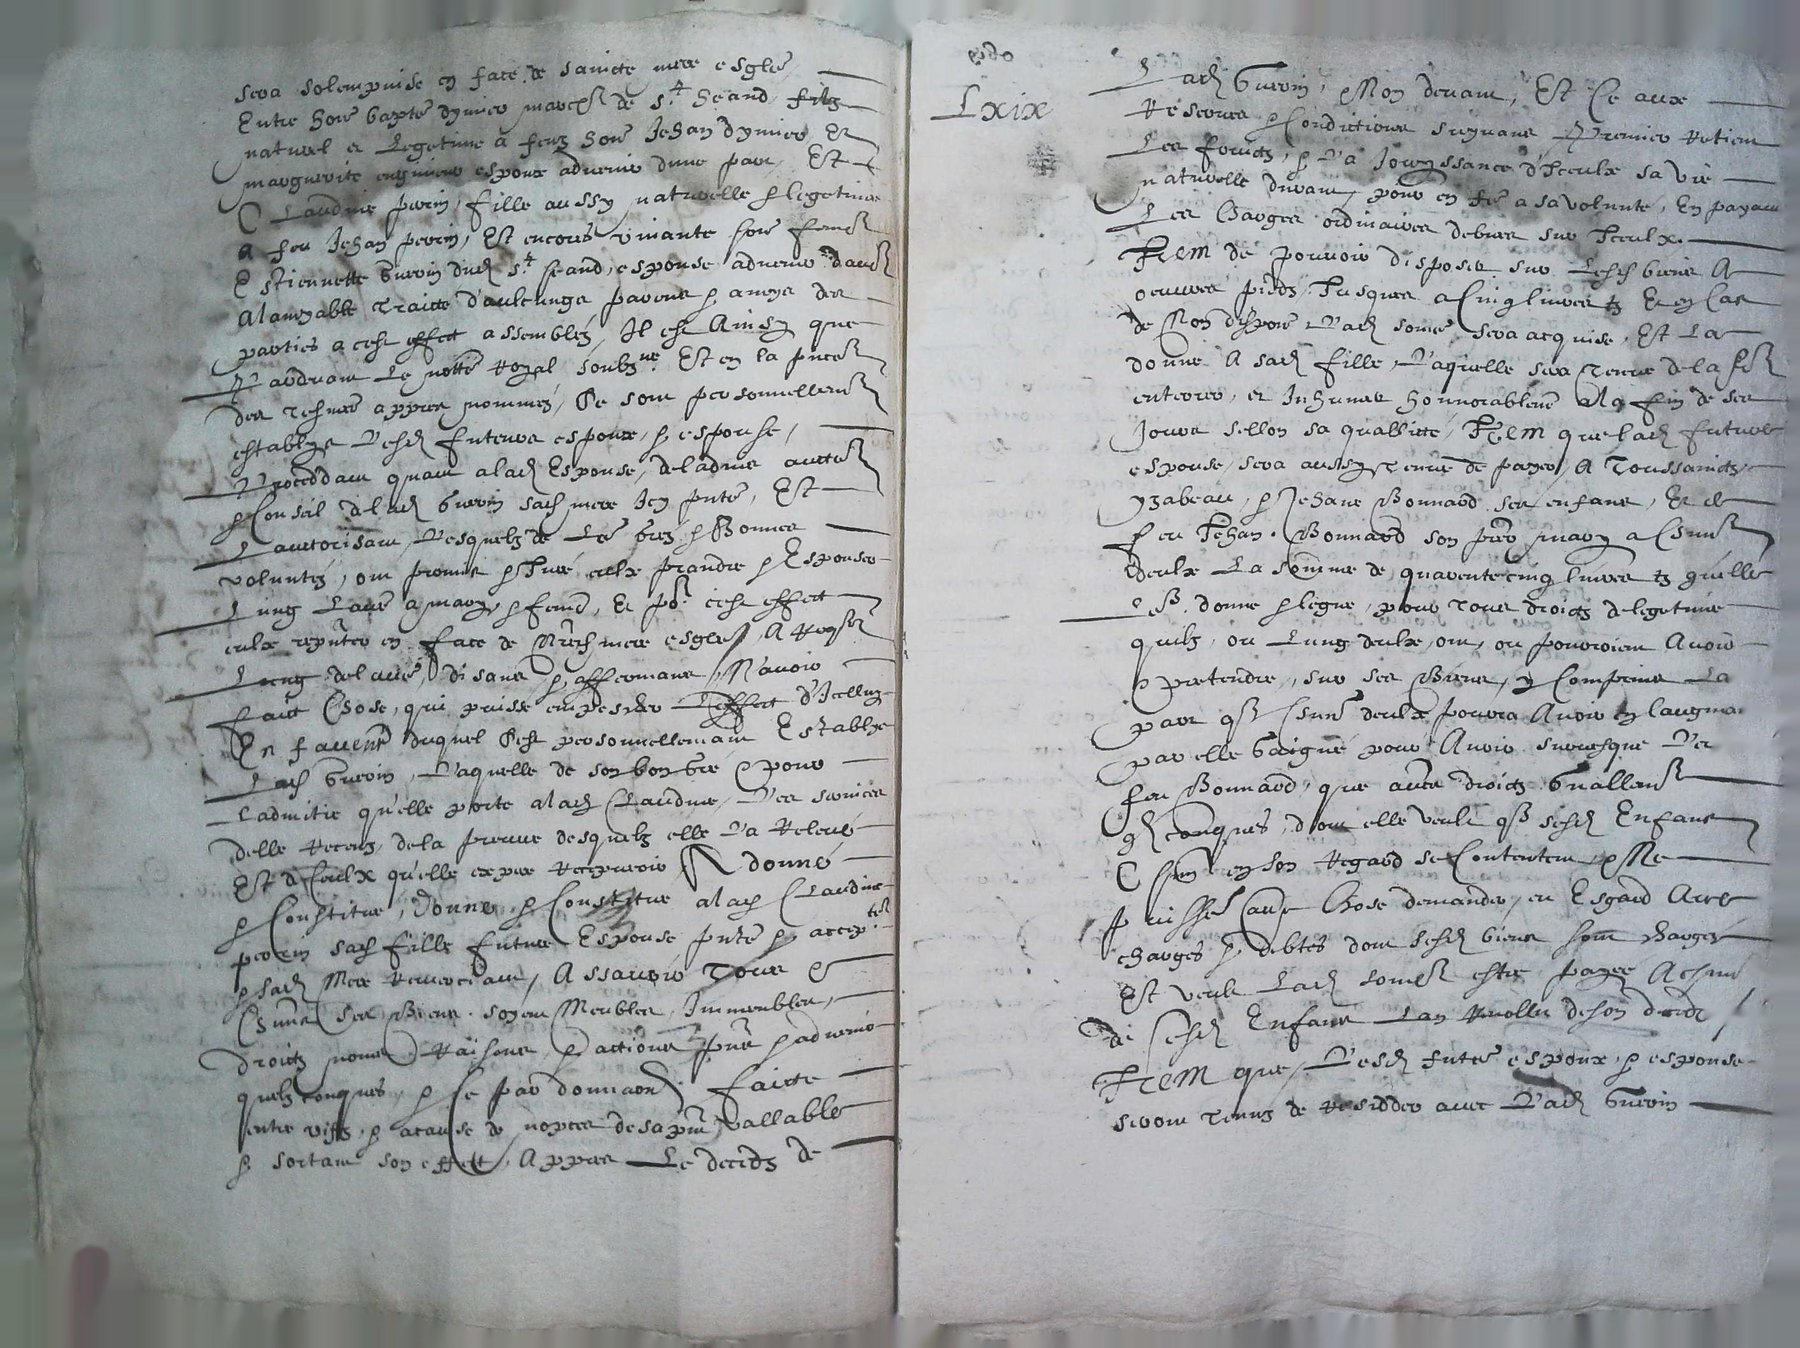 sera solempnise en face de saincte mere esglé
Entre hon baptē dymier march de St heand filz
naturel et legetime a feuz hon Jehan dymier Et
marguerite espoux advenir dune part Et
Claudine perin fille aussy naturelle & legetime
A feu Jehan perrin, Est encores vivante hon feme
Estiennette Guerin dud St heand, espouse advenir daue
Alamyable traitté daulcungs parens & amys des
parties a cest effect assemblés, Il est Ainsy que
Pardevant Le notre Royal soubzne Est en la pnce
des tesmes appres nommez, Se sont personnellemt
establys Lesd futurs espoux, & espouse,
Proceddant quant a lad Espouse, de ladvis auctte
& Conseil de lad Guerin sad mere Icy pnte, Est
Lauctorisant, Lesquelz de Leʳ grez & Bonnes
voluntez, ont promis & Juré eulx prandre & Espouser
Lung Laue a mary & feme, Et pour cest effect
eulx repnter en face de Nred mere esgles, A Reqse
Lung de laue, disans & affermans, Navoir
faict Chose, qui puisse empescher Leffect d'Icelluy
En faveur duquel Sest personnellemant Establye
Lad Guerin, Laquelle de son bon gre & pour
Ladmitie quelle porte alad Claudine, Les services
delle Receuz, de la preuve desquelz elle La Relevé
Est d Ceulx quelle espere Recepvoir A donné
& Constitue, donne & Constitue alad Claudine
perrin sad fille future Espouse pnte & acceptte
& sad Mere Remerciant, Assavoir Tous &
Chuns ses Biens, soyent Meubles, Immeubles,
droictz noms Raisons & actions pns & advenir
quelzconques, & Ce par donnaon faicte
entre vifz & acause de nopces desapnt vallable
& sortant son effect, Appres Le decedz de
Lxix
Lad Guerin, Non devant, Est Ce aux
Reserves & Condictions suyvans Premier Retient
Les fruictz, & La Jouyssance d'Iceulx sa vie
naturelle durant, pour en fre a sa volunté, En payant
Les Charges ordinaires debues sur Iceulx.
Item de pouvoir disposer sur Lesd biens A
oeuvres piedz Jusques a Cinq livres tz Et en Cas
de Non dispore Lad some sera acquise, Est La
donne A sad fille, Laquelle sera Tenue de la fe
enterrer, et Inhumer honnorablemt ala fin de ses
Jours sellon sa quallitté, Item que lad future
espouse, sera aussy Tenue de payer, A Toussainctz,
yzabeau, & Jehane Bonnard ses enfans, Et de
feu Jehan Bonnard son per mary a Chune
deulx La somme de quarente cinq livres tz quelle
Leʳ donne & legue, pour Tous droictz de legetime
quilz, ou Lung deulx, ont, ou pourroient Avoir
& pretendre, sur ses Biens, y Comprins La
part qe Chune deulx pourra Avoir en laugmt
par elle Gaigné pour Avoir survesque Led
feu Bonnard, que aues droictz
qlconques, dont elle veult qe sesd Enfans
Chun en son Regard se Contentent & Ne
puissent aue Chose demander, eu Esgard Aux
charges & debtes dont sesd biens sont Charges
Est veult Lad some estre payee A chun
de sesd Enfans Lan Revollu de son deces
Item que, Lesd futs espoux & espouse
seront tenuz de Residder avec Lad Guerin